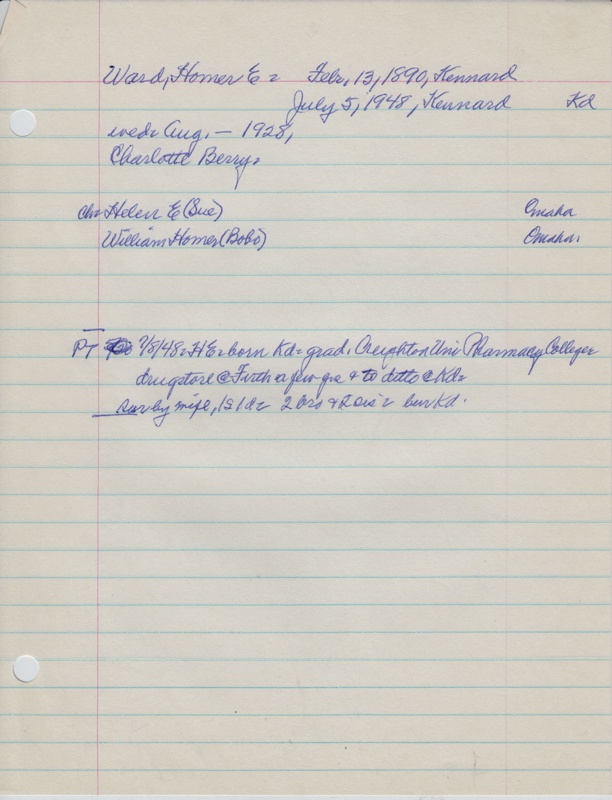 Ward, Homer E = Febr, 13, 1890, Kennard
July 5, 1948, Kennard Kd
wed= Aug. — 1928,
Charlotte Berry=
ch= Helen E (Sue) Omaha
William Homer (Bobs) Omaha.
PT 7/8/48= HE= born Kd= grad. Creighton Uni Pharmacy College=
drugstore @ Firth a few yrs & to ditto @ Kd=
sur by wife, 1s 1d= 2 bro & 2 sis= bur Kd.